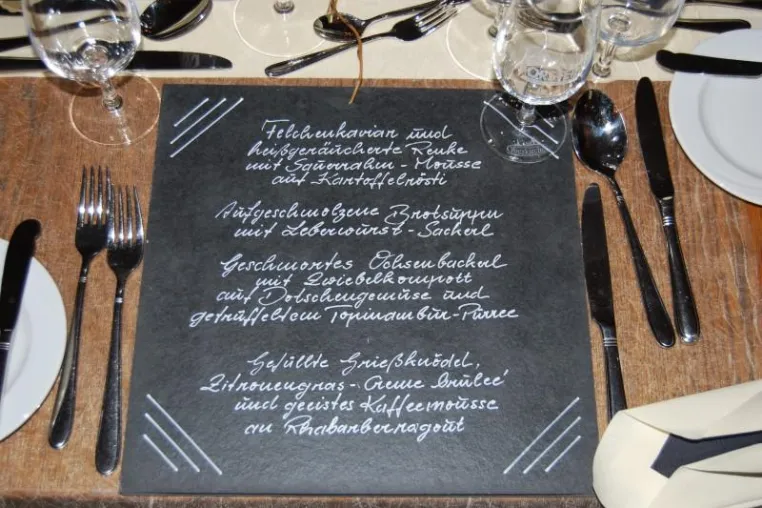 Felchenkaviar und
heißgeräucherte Renke
mit Sauerrahm-Mousse
auf Kartoffelrösti
Aufgeschmolzene Brotsuppn
mit Leberwurst-Sackerl
Geschmortes Ochsenbackerl
mit Zwiebelkompott
auf Dotschengemüse und
getrüffeltem Topinambur-Púrree
Gefüllte Grießknödel,
Zitronengras-Creme Brulee'
und geeistes Kaffeemousse
an Rhabarberragout